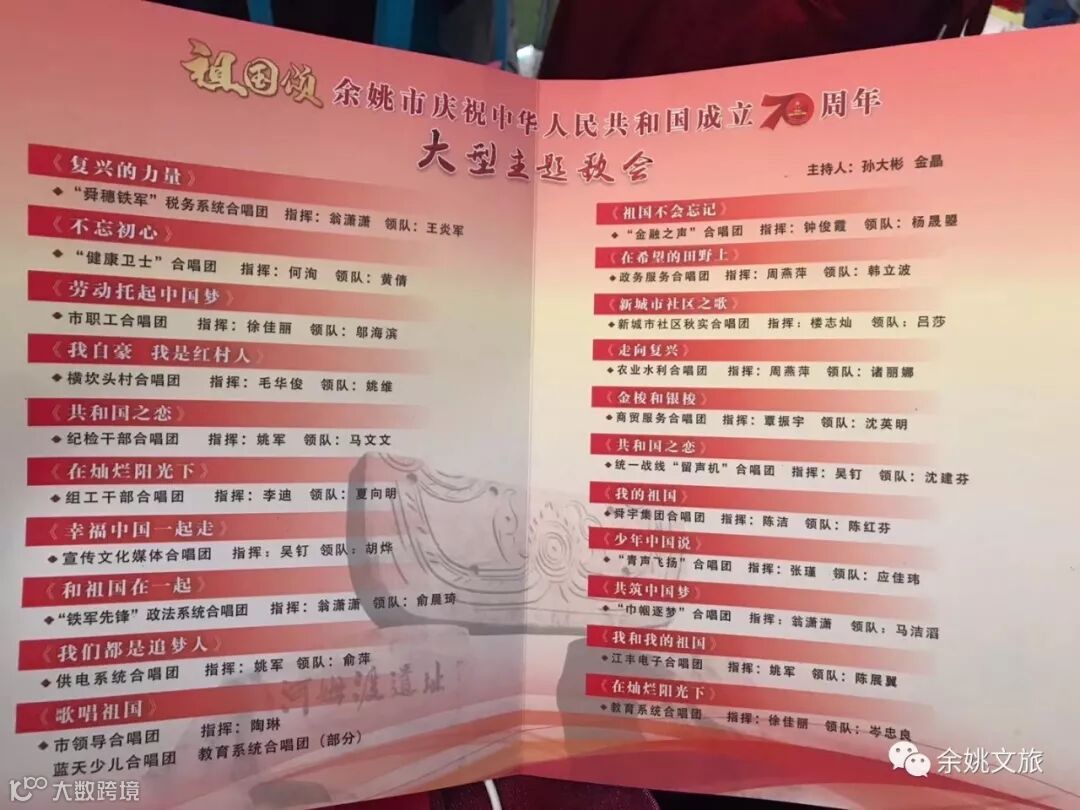 祖国颂 余姚市庆祝中华人民共和国成立70周年
大型主题歌会
主持人：孙大彬 金晶
《复兴的力量》
◆“舜穗铁军”税务系统合唱团 指挥：翁潇潇 领队：王炎军
《不忘初心》
◆“健康卫士”合唱团 指挥：何洵 领队：黄倩
《劳动托起中国梦》
◆市职工合唱团 指挥：徐佳丽 领队：邬海滨
《我自豪 我是红村人》
◆横坎头村合唱团 指挥：毛华俊 领队：姚维
《共和国之恋》
◆纪检干部合唱团 指挥：姚军 领队：马文文
《在灿烂阳光下》
◆组工干部合唱团 指挥：李迪 领队：夏向明
《幸福中国一起走》
◆宣传文化媒体合唱团 指挥：吴钉 领队：胡烨
《和祖国在一起》
◆“铁军先锋”政法系统合唱团 指挥：翁潇潇 领队：俞晨琦
《我们都是追梦人》
◆供电系统合唱团 指挥：姚军 领队：俞萍
《歌唱祖国》
◆市领导合唱团 指挥：陶琳
蓝天少儿合唱团 教育系统合唱团（部分）
河姆渡遗址
《祖国不会忘记》
◆“金融之声”合唱团 指挥：钟俊霞 领队：杨晟曌
《在希望的田野上》
◆政务服务合唱团 指挥：周燕萍 领队：韩立波
《新城市社区之歌》
◆新城市社区秋实合唱团 指挥：楼志灿 领队：吕莎
《走向复兴》
◆农业水利合唱团 指挥：周燕萍 领队：诸丽娜
《金梭和银梭》
◆商贸服务合唱团 指挥：覃振宇 领队：沈英明
《共和国之恋》
◆统一战线“留声机”合唱团 指挥：吴钉 领队：沈建芬
《我的祖国》
◆舜宇集团合唱团 指挥：陈洁 领队：陈红芬
《少年中国说》
◆“青声飞扬”合唱团 指挥：张瑾 领队：应佳玮
《共筑中国梦》
◆“巾帼逐梦”合唱团 指挥：翁潇潇 领队：马洁滔
《我和我的祖国》
◆江丰电子合唱团 指挥：姚军 领队：陈展翼
《在灿烂阳光下》
◆教育系统合唱团 指挥：徐佳丽 领队：岑忠良
余姚文旅
大数跨境